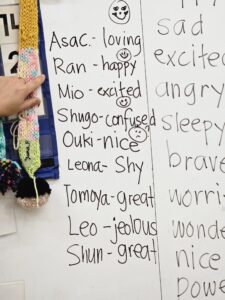 Asac.- loving
Ran - happy
Mio - excited
Shugo-confused
Ouki-nice
Leona- Shy
Tomoya-great
Leo -jeolous
Shun- great
sad
excited
angry
Sleepy
brave
worri
wonde
nice
Powe